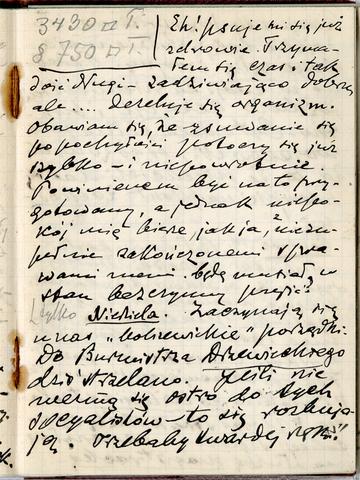 3430 □ T.
§ 750 □ T.
Eh! psuje mi się już
zdrowie. Trzyma-
łem się czas i tak
dość długi – zadziwiająco dobrze,
ale.... deseluje się organizm.
Obawiam się, że zsuwanie się
po pochyłości potoczy się już
szybko – i niepowrotnie.
Powinienem być na to przy-
gotowany, a jednak niepo-
kój mię bierze, jak ja, z niezu-
pełnie zakończonemi spra-
wami memi będę musiał w
stan bezczynny przejść.
tylko Niedziela. Zaczynają się
u nas "bolszewickie" porządki.
Do Burmistrza Drzewieckiego
dziś strzelano. Jeśli nie
wezmą się ostro do tych
socyalistów – to się rozbuja-
ją. Trzebaby twardej ręki!